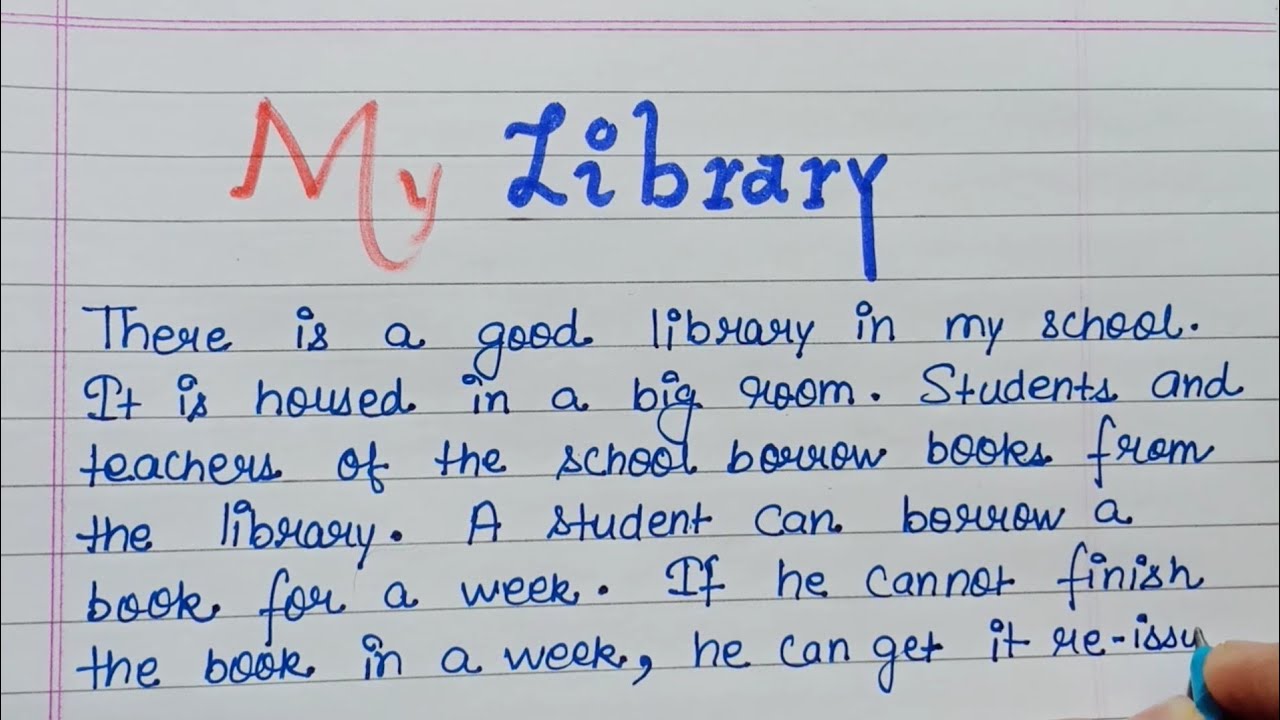 My Library
There is a good library in my school.
It is housed in a big room. Students and
teachers of the school borrow books from
the library. A student can borrow a
book for a week. If he cannot finish
the book in a week, he can get it re-issu